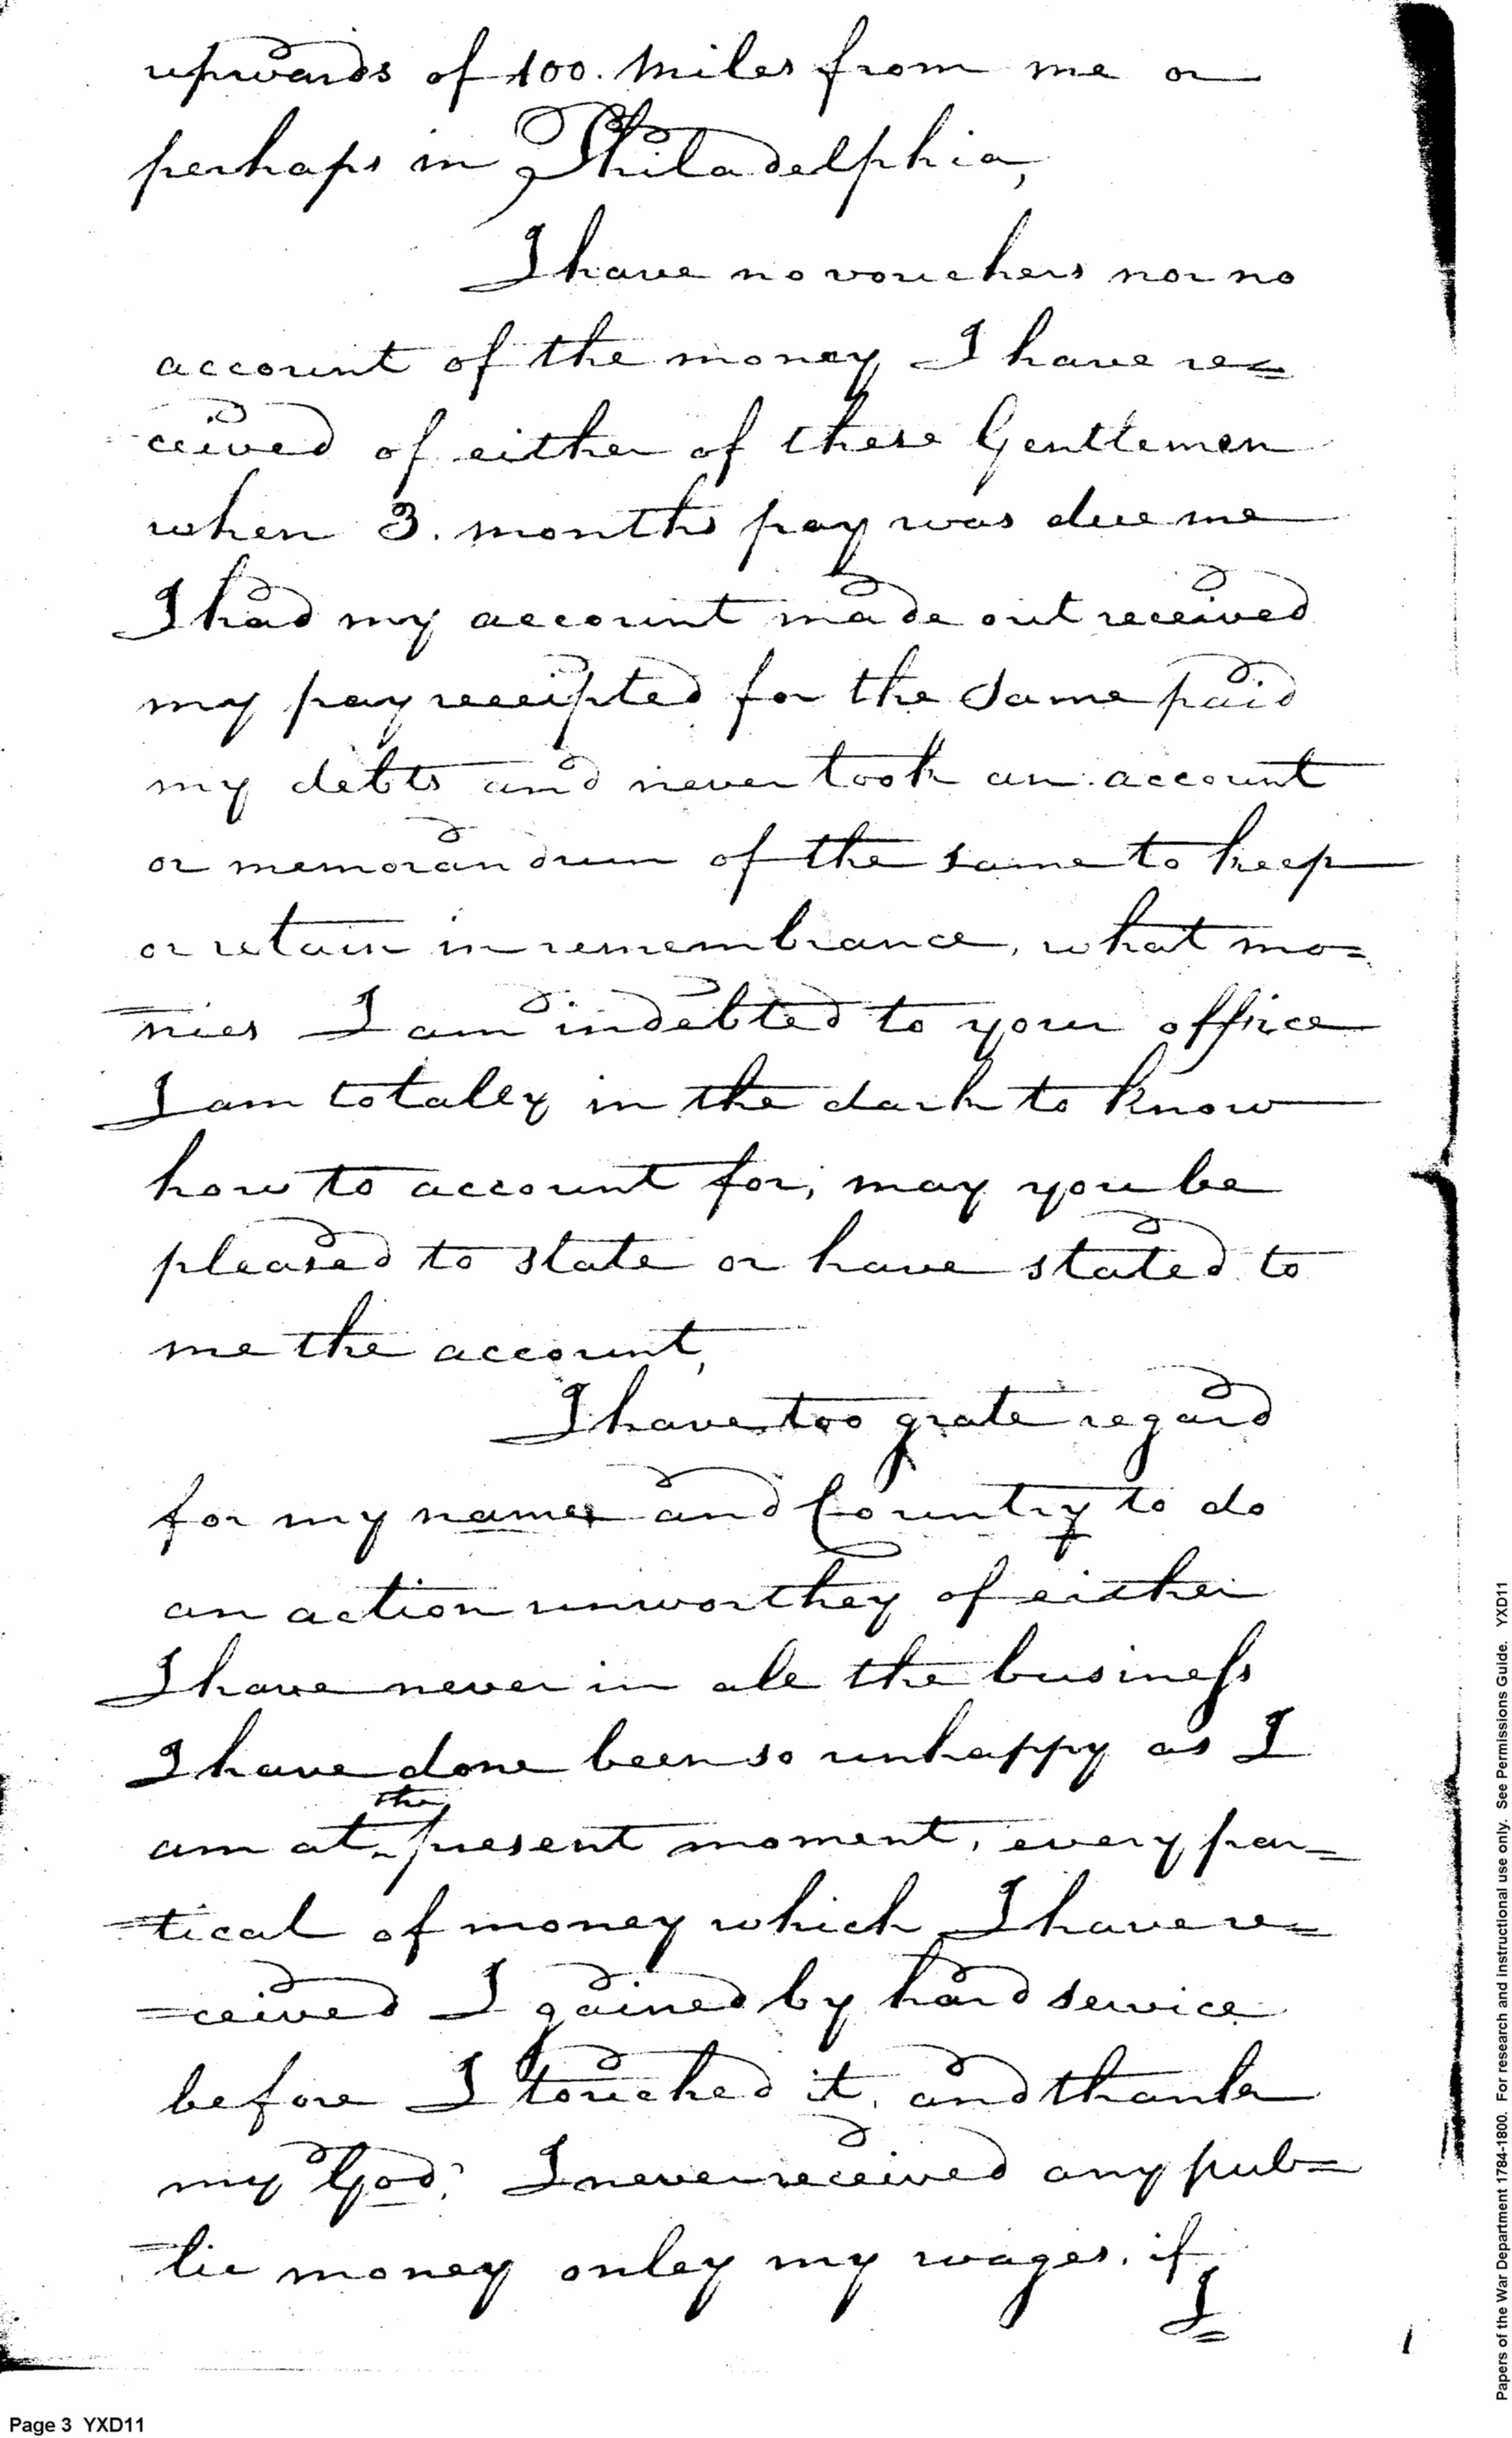 upwards of 100. Miles from me or
perhaps in Philadelphia,
I have no vouchers nor no
account of the money I have re=
ceived of either of these Gentlemen
when 3. months pay was due me
I had my account made out received
my pay receipted for the same paid
my debts and never took an account
or memorandum of the same to keep
or retain in remembrance, what mo=
=nies I am indebted to your office
I am totally in the dark to know
how to account for, may you be
pleased to state or have stated to
me the account,
I have too grate regard
for my name and Country to do
an action unworthey of either
I have never in all the business
I have done been so unhappy as I
the
am at present moment, every par=
=tical of money which I have re=
=ceived I gained by hard service
before I touched it, and thank
my God, I never received any pub=
=lic money onley my wages. if
I
Page 3 YXD11
Papers of the War Department 1784-1800. For research and instructional use only. See Permissions Guide. YXD11